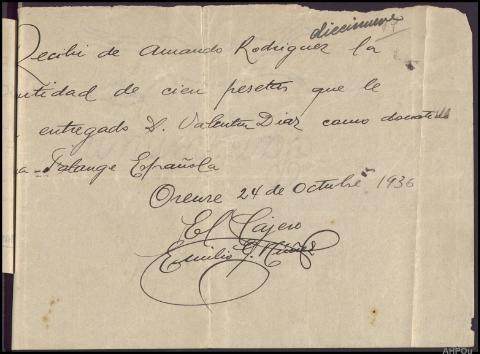 diecinueve
Recibi de Amando Rodriguez la
ntidad de cien pesetas que le
entregado D. Valentin Diaz como donativo
a Falange Española
Orense 24 de Octubre 1936
El Cajero
Emilio G.
AHPOu